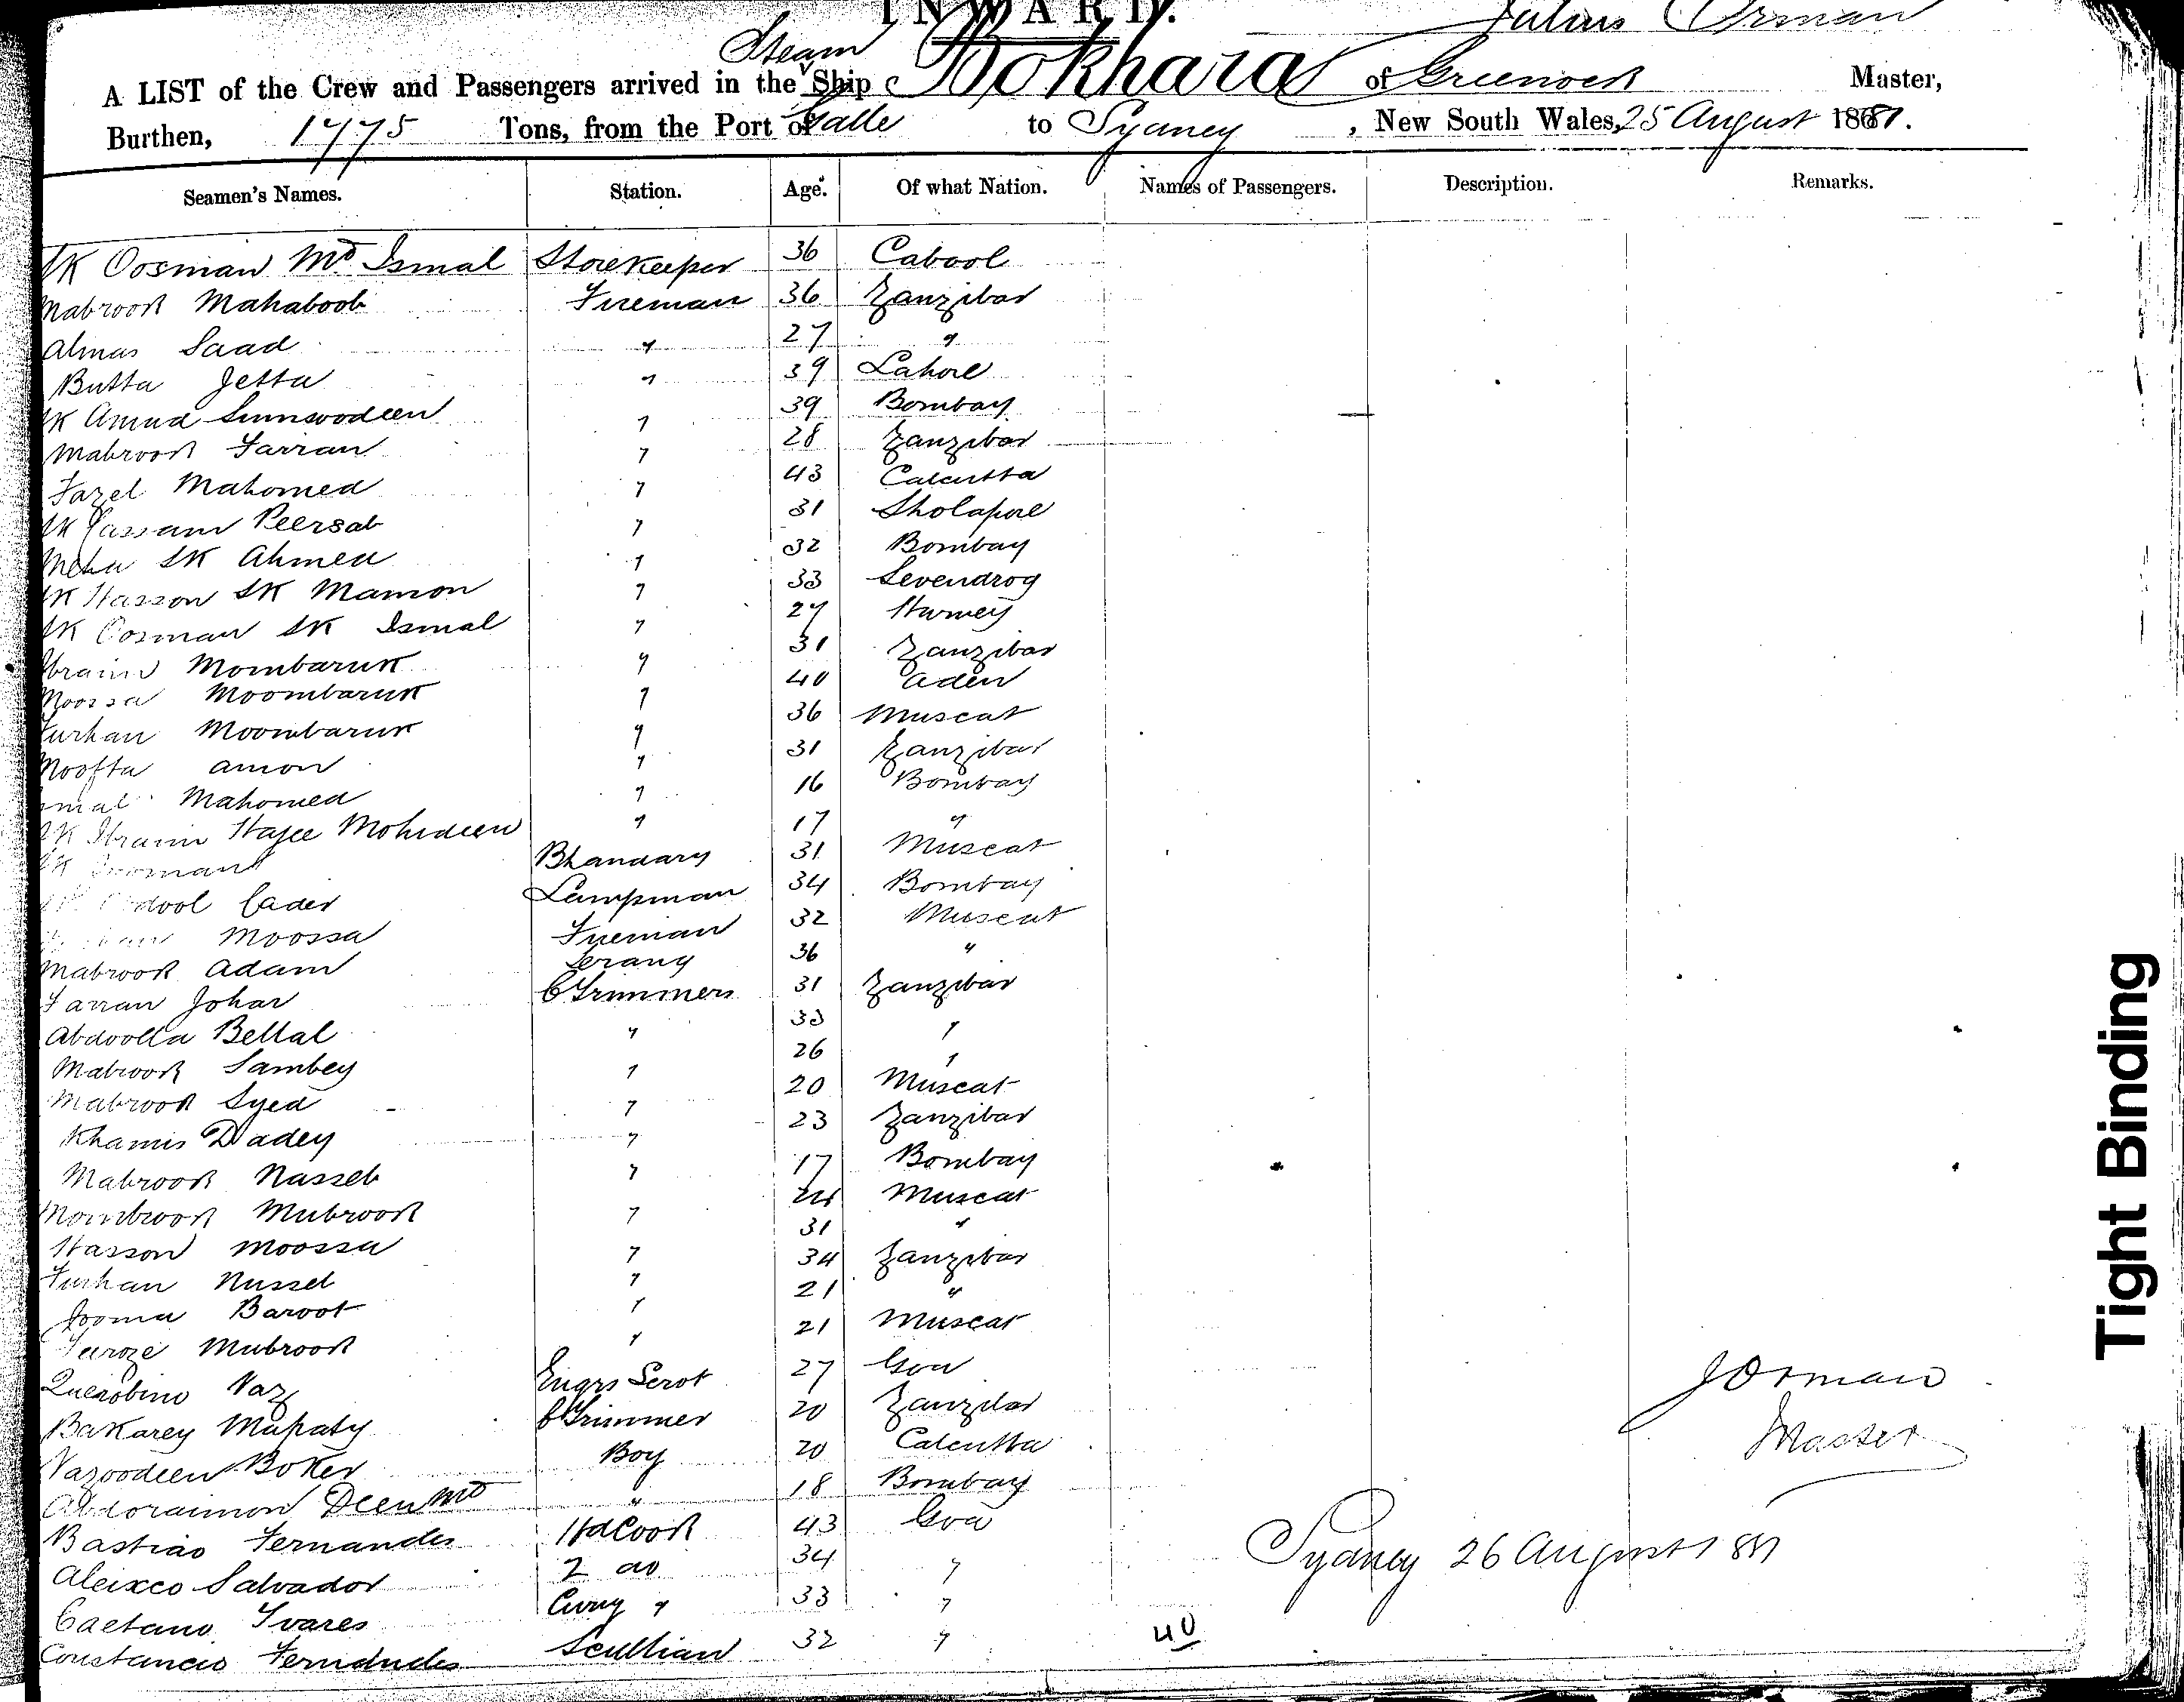 INWARD.
Julius Orman
Steam
A LIST of the Crew and Passengers arrived in the Ship Bokhara of Greenock Master,
Burthen, 1775 Tons, from the Port of Galle to Sydney, New South Wales, 25 August 1881.
Seamen's Names. Station. Age. Of what Nation. Names of Passengers. Description. Remarks.
SK Oosman Md Ismal Storekeeper 36 Cabool
Mabrook Mahaboob Fireman 36 Zanzibar
Almas Saad " 27 "
Butta Jetta " 39 Lahore
SK Amud Sumsoodeen " 39 Bombay
Mabrook Farran " 28 Zanzibar
Fazel Mahomed " 43 Calcutta
SK Cassam Peersab " 31 Sholapore
SK Ahmed " 32 Bombay
SK Hasson SK Mamon " 33 Sevendrog
SK Oosman SK Ismal " 27 Hurney
Ibraim Mombaruk " 31 Zanzibar
Moossa Moombaruk " 40 Aden
Furhan Moombaruk " 36 Muscat
Moofta Amon " 31 Zanzibar
Ismal Mahomed " 16 Bombay
SK Ibraim Hajee Mohideen " 17 "
SK Oosman Bhandary 31 Muscat
Abdool Cader Lampman 34 Bombay
Moossa Fireman 32 Muscat
Mabrook Adam Serang 36 "
Farran Johar C Trimmers 31 Zanzibar
Abdoolla Bellal " 33 "
Mabrook Sambey " 26 "
Mabrook Syed " 20 Muscat
Khamis Dadey " 23 Zanzibar
Mabrook Nasseb " 17 Bombay
Mombrook Mubrook " Muscat
Hasson Moossa " 31 "
Furhan Nusseb " 34 Zanzibar
Jooma Baroot " 21 "
Feroze Mubrook " 21 Muscat
Querobino Vaz Engrs Servt 27 Goa
Bakarey Mapaty C Trimmer 20 Zanzibar
Nazoodeen Boker Boy 20 Calcutta
Abdoraimon Deen Md " 18 Bombay
Bastiao Fernandes Hd Cook 43 Goa
Aleixco Salvador 2 do 34 "
Caetano Curry " 33 "
Constancio Fernandes Scullian 32 "
J Orman
Master
Sydney 26 August 1881
40
Tight Binding